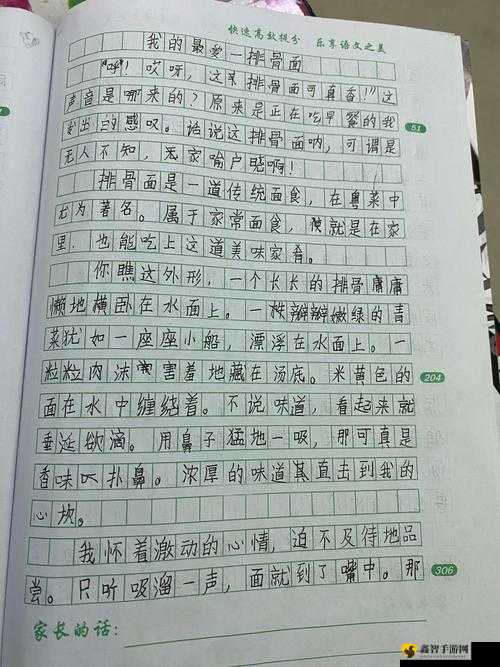 快速高效提分 乐享语文之美
我的最爱一排骨面
“呼！哎呀，这某排骨面可真香！”这
声音是哪来的？原来是正在吃早餐的我
发出的感叹。话说这排骨面呐，可谓是
无人不知，无家喻户晓啊！
排骨面是一道传统面食，在粤菜中
尤为著名。属于家常面食，使就是在家
里，也能吃上这道美味家肴。
你瞧这外形，一个长长的排骨慵慵
懒地横卧在水面上。一株瓣瓣嫩绿的青
菜犹如一座座小船，漂浮在水面上。一
粒粒肉沫害羞地藏在汤底。米黄色的
面在水中缠绕着。不说味道，看起来就
垂涎欲滴。用鼻子猛地一吸，那可真是
香味扑鼻。浓厚的味道直击到我的
心坎。
我怀着激动的心情，迫不及待地品
尝。只听吸溜一声，面就到了嘴中。那
家长的话：
51
204
306
鑫智手游网